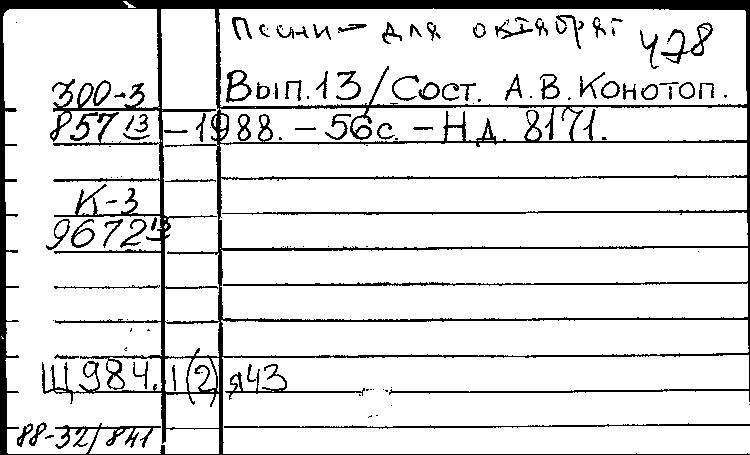 Песни для октябрят 478
300-3 Вып.13/Сост. А.В.Конотоп.
857 13 -1988. -56с. -Н.д. 8171.
К-3
9672 13
Щ984.1(2)я43
88-32/841